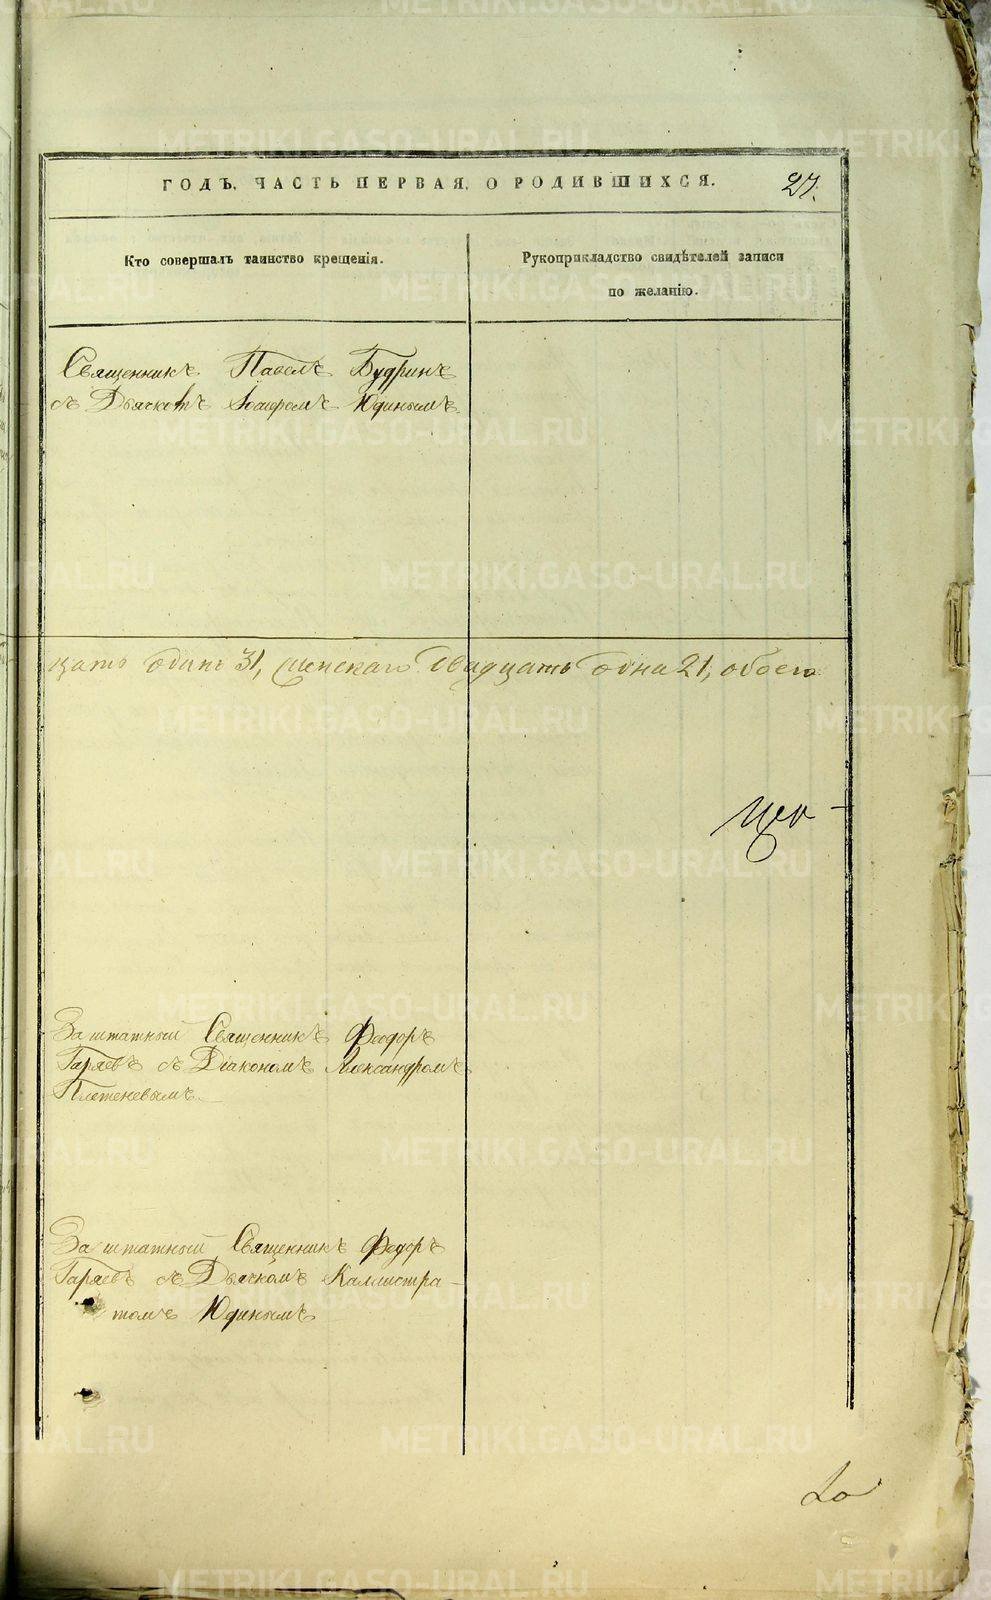 ГОДЪ, ЧАСТЬ ПЕРВАЯ, О РОДИВШИХСЯ. 27.
Кто совершалъ таинство крещенія.
Рукоприкладство свидѣтелей записи
по желанію.
Священникъ Павелъ Будринъ
съ Дьячкомъ Іосифомъ Юдинымъ.
цать одинъ 31, женскаго двадцать одна 21, обоего
Заштатный Священникъ Феодоръ
Гаряевъ съ Діакономъ Александромъ
Плетеневымъ.
Заштатный Священникъ Федоръ
Гаряевъ съ Дьячкомъ Каллистра-
томъ Юдинымъ
METRIKI.GASO-URAL.RU